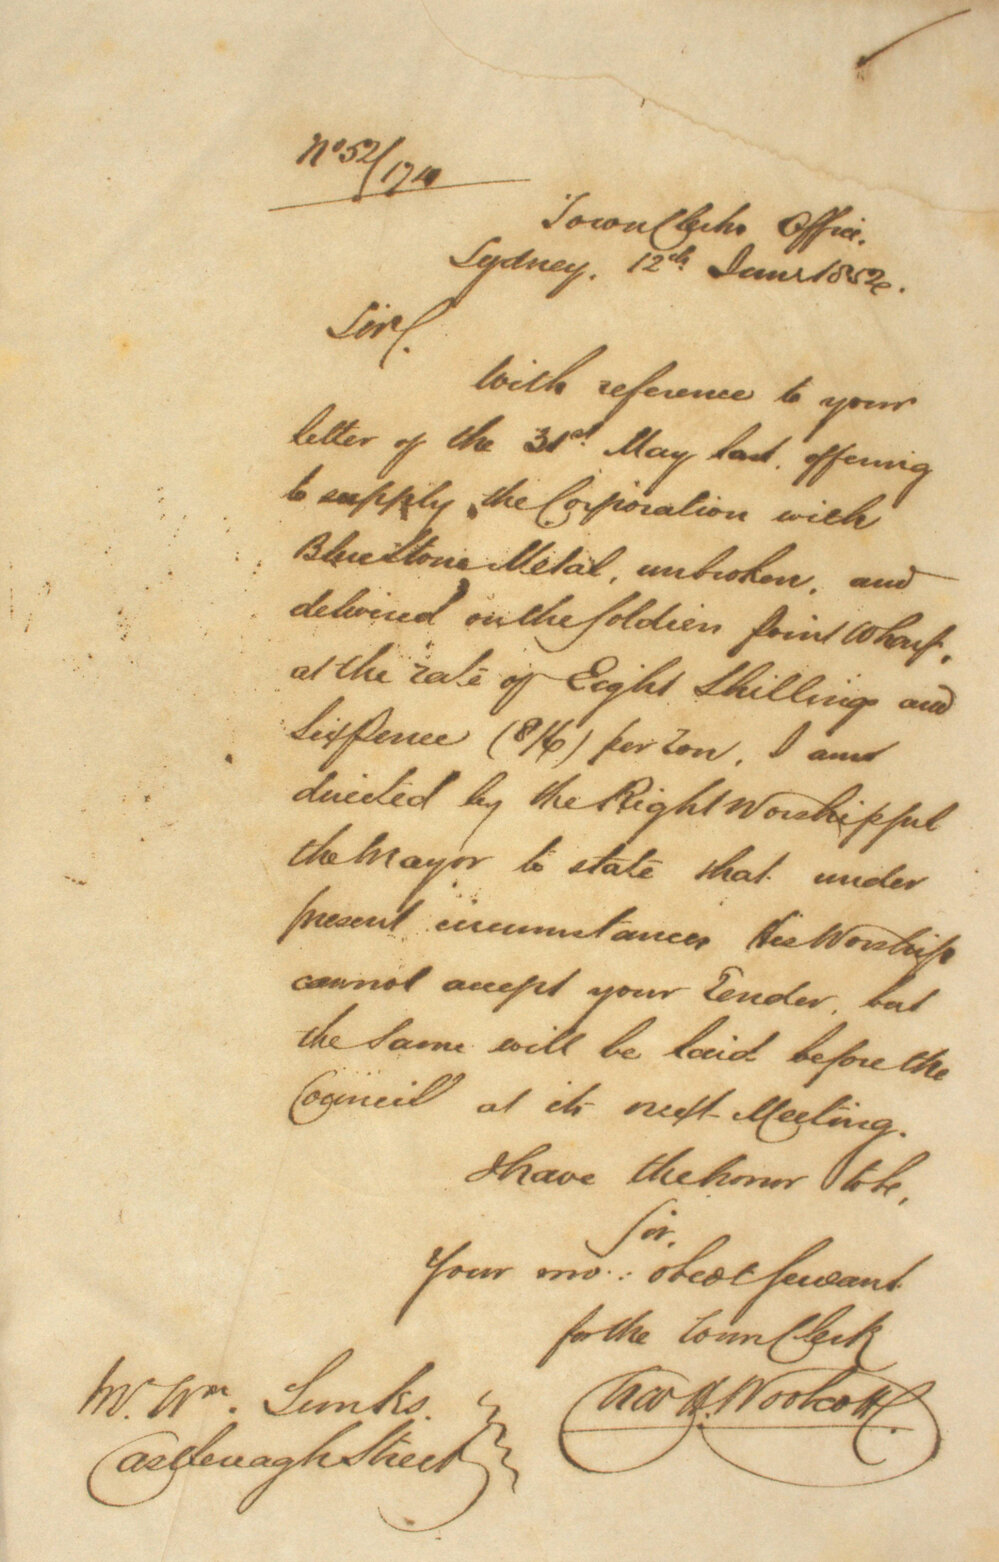 No 52/1740
Town Clerks Office.
Sydney. 12th June 1852.
Sir,
With reference to your
letter of the 31st May last, offering
to supply the Corporation with
Blue Stone Metal, unbroken, and
delivered on the Soldiers Point Wharf,
at the rate of Eight Shillings and
Sixpence (8/6) per ton, I am
directed by the Right Worshipful
the Mayor to state that under
present circumstances His Worship
cannot accept your Tender, but
the same will be laid before the
Council at its next Meeting.
I have the honor to be,
Sir,
Your mo: obedt Servant
for the Town Clerk
Chas H. Woolcott
Mr. Wm. Lunks.
Castlereagh Street